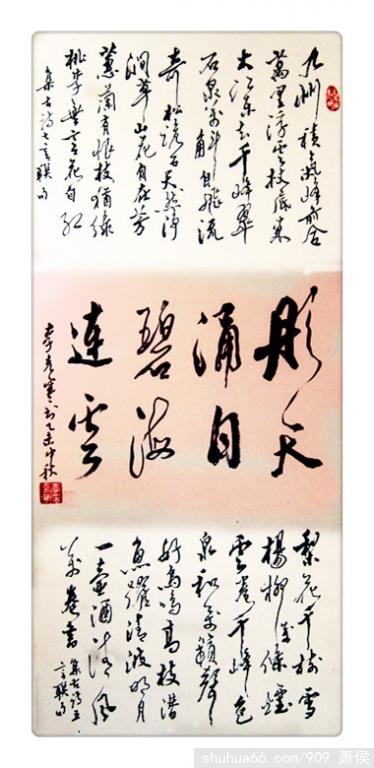 九州積氣峰前合
萬里浮雲杖底來
大江東去千峰翠
石泉萬斛自飛流
奇松石天然淨
澗草山花自在芳
蕙蘭有恨枝猶綠
桃李無言花自紅
集古詩七言聯句
彤天
涌日
碧海
連雲
李寒書乙未中秋
梨花千樹雪
楊柳萬條煙
雲卷千峰色
泉和萬籟聲
好鳥鳴高枝潛
魚躍清波明月
一壺酒清風
萬卷書
集古詩五
言聯句
shuhua66.com/909 萧侯